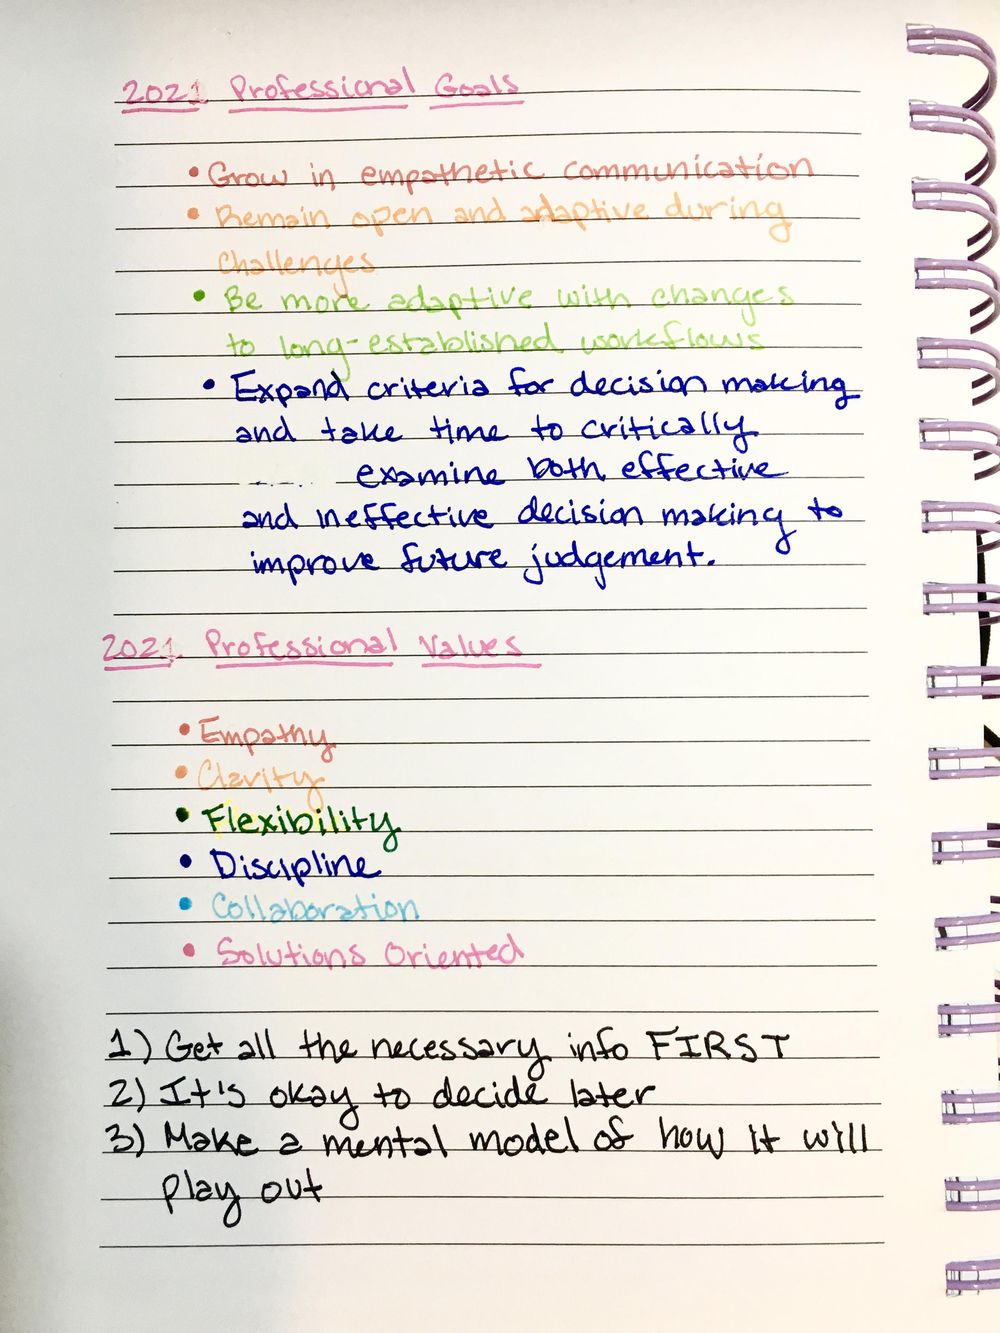 2021 Professional Goals
• Grow in empathetic communication
• Remain open and adaptive during
challenges
• Be more adaptive with changes
to long-established workflows
• Expand criteria for decision making
and take time to critically
examine both effective
and ineffective decision making to
improve future judgement.
2021 Professional Values
• Empathy
• Clarity
• Flexibility
• Discipline
• Collaboration
• Solutions Oriented
1) Get all the necessary info FIRST
2) It's okay to decide later
3) Make a mental model of how it will
play out